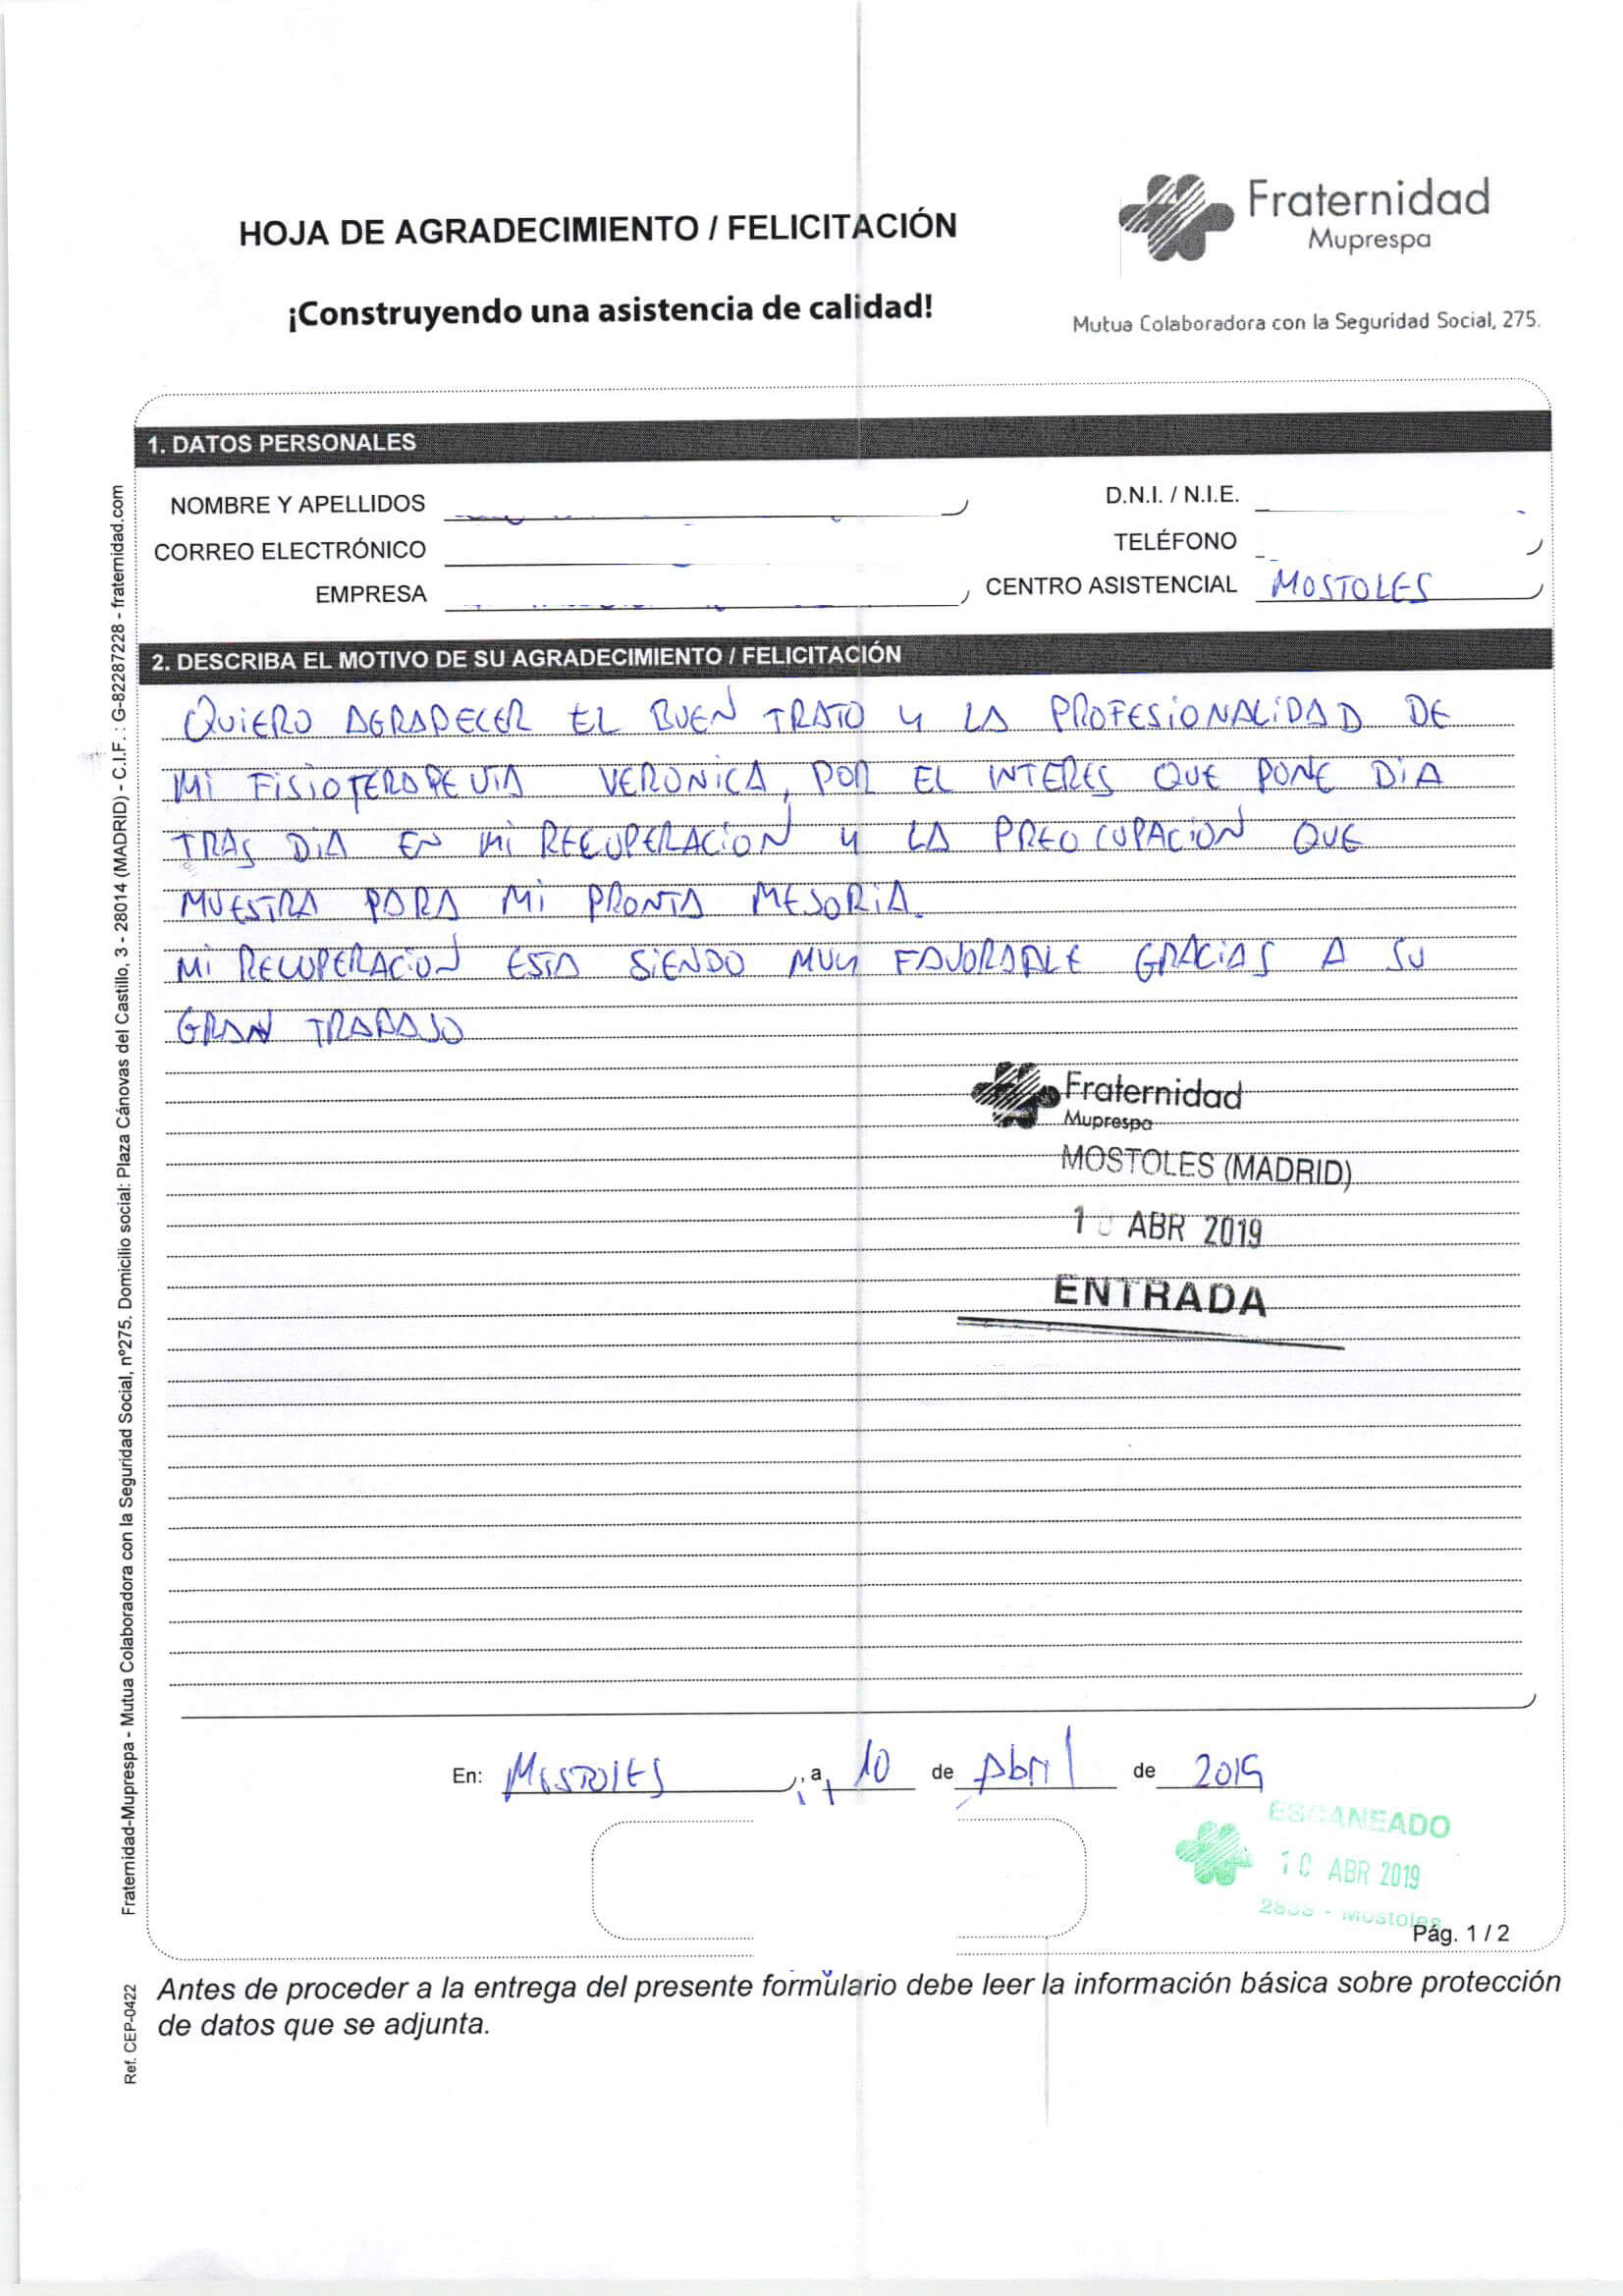 HOJA DE AGRADECIMIENTO / FELICITACIÓN
¡Construyendo una asistencia de calidad!
Fraternidad
Muprespa
Mutua Colaboradora con la Seguridad Social, 275.
1. DATOS PERSONALES
NOMBRE Y APELLIDOS
D.N.I. / N.I.E.
CORREO ELECTRÓNICO
TELÉFONO
EMPRESA
CENTRO ASISTENCIAL MOSTOLES
2. DESCRIBA EL MOTIVO DE SU AGRADECIMIENTO / FELICITACIÓN
QUIERO AGRADECER EL BUEN TRATO Y LA PROFESIONALIDAD DE
MI FISIOTERAPEUTA VERONICA, POR EL INTERES QUE PONE DIA
TRAS DIA EN MI RECUPERACION Y LA PREOCUPACION QUE
MUESTRA PARA MI PRONTA MEJORIA.
MI RECUPERACION ESTA SIENDO MUY FAVORABLE GRACIAS A SU
GRAN TRABAJO
Fraternidad
Muprespa
MOSTOLES (MADRID)
10 ABR 2019
ENTRADA
En: MOSTOLES, a 10 de Abril de 2019
ESCANEADO
10 ABR 2019
- Mostoles
Pág. 1 / 2
Antes de proceder a la entrega del presente formulario debe leer la información básica sobre protección
de datos que se adjunta.
Fraternidad-Muprespa - Mutua Colaboradora con la Seguridad Social, nº275. Domicilio social: Plaza Cánovas del Castillo, 3 - 28014 (MADRID) - C.I.F. : G-82287228 - fraternidad.com
Ref. CEP-0422